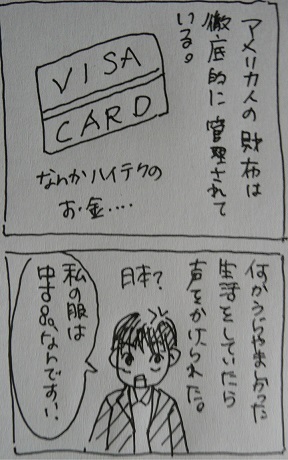 アメリカ人の財布は
徹底的に管理されて
いる。
VISA
CARD
なんかハイテクの
お金....
何か
生活をしていたら
声をかけられた。
日本?
私の服は
中古品なんです!!